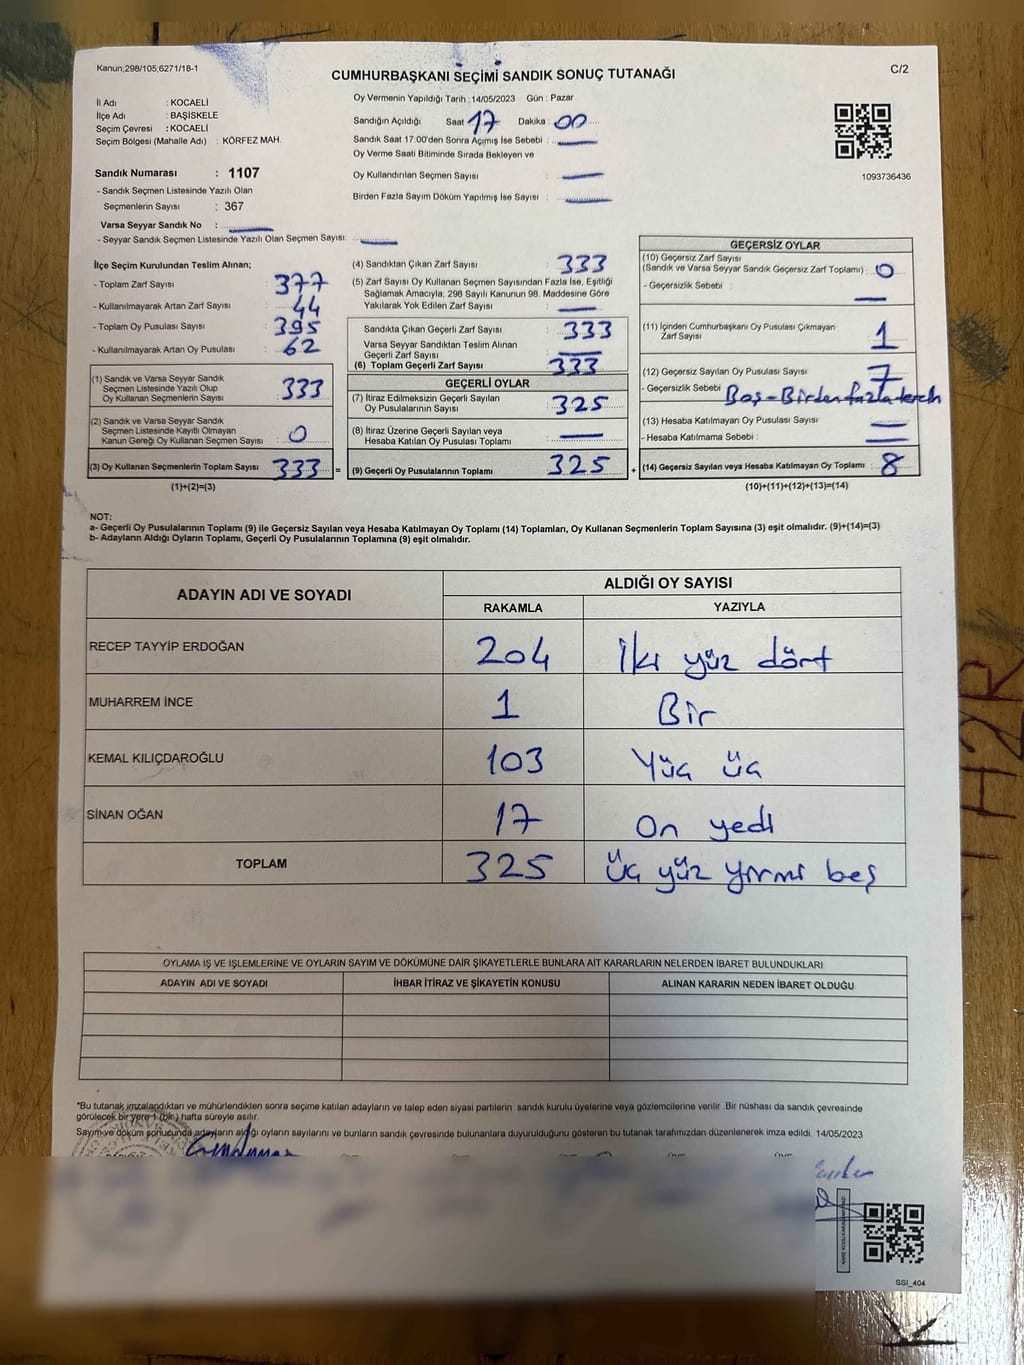 Kanun;298/105,6271/18-1
CUMHURBAŞKANI SEÇİMİ SANDIK SONUÇ TUTANAĞI
C/2
İl Adı : KOCAELİ
İlçe Adı : BAŞİSKELE
Seçim Çevresi : KOCAELİ
Seçim Bölgesi (Mahalle Adı) : KÖRFEZ MAH.
Sandık Numarası : 1107
- Sandık Seçmen Listesinde Yazılı Olan
Seçmenlerin Sayısı : 367
Varsa Seyyar Sandık No :
- Seyyar Sandık Seçmen Listesinde Yazılı Olan Seçmen Sayısı:
Oy Vermenin Yapıldığı Tarih :14/05/2023 Gün : Pazar
Sandığın Açıldığı Saat 17 Dakika : 00
Sandık Saat 17:00'den Sonra Açımış İse Sebebi :
Oy Verme Saati Bitiminde Sırada Bekleyen ve
Oy Kullandırılan Seçmen Sayısı :
Birden Fazla Sayım Döküm Yapılmış İse Sayısı :
1093736436
İlçe Seçim Kurulundan Teslim Alınan;
- Toplam Zarf Sayısı : 377
- Kullanılmayarak Artan Zarf Sayısı : 44
- Toplam Oy Pusulası Sayısı : 395
- Kullanılmayarak Artan Oy Pusulası : 62
(1) Sandık ve Varsa Seyyar Sandık
Seçmen Listesinde Yazılı Olup
Oy Kullanan Seçmenlerin Sayısı : 333
(2) Sandık ve Varsa Seyyar Sandık
Seçmen Listesinde Kayıtlı Olmayan
Kanun Gereği Oy Kullanan Seçmen Sayısı : 0
(3) Oy Kullanan Seçmenlerin Toplam Sayısı : 333 =
(1)+(2)=(3)
(4) Sandıktan Çıkan Zarf Sayısı : 333
(5) Zarf Sayısı Oy Kullanan Seçmen Sayısından Fazla İse, Eşitliği
Sağlamak Amacıyla; 298 Sayılı Kanunun 98. Maddesine Göre
Yakılarak Yok Edilen Zarf Sayısı :
Sandıkta Çıkan Geçerli Zarf Sayısı : 333
Varsa Seyyar Sandıktan Teslim Alınan
Geçerli Zarf Sayısı :
(6) Toplam Geçerli Zarf Sayısı : 333
GEÇERLİ OYLAR
(7) İtiraz Edilmeksizin Geçerli Sayılan
Oy Pusulalarının Sayısı : 325
(8) İtiraz Üzerine Geçerli Sayılan veya
Hesaba Katılan Oy Pusulası Toplamı :
(9) Geçerli Oy Pusulalarının Toplamı : 325 +
GEÇERSİZ OYLAR
(10) Geçersiz Zarf Sayısı
(Sandık ve Varsa Seyyar Sandık Geçersiz Zarf Toplamı) : 0
- Geçersizlik Sebebi :
(11) İçinden Cumhurbaşkanı Oy Pusulası Çıkmayan
Zarf Sayısı : 1
(12) Geçersiz Sayılan Oy Pusulası Sayısı : 7
- Geçersizlik Sebebi Boş-Birden fazla tercih
(13) Hesaba Katılmayan Oy Pusulası Sayısı :
- Hesaba Katılmama Sebebi :
(14) Geçersiz Sayılan veya Hesaba Katılmayan Oy Toplamı : 8
(10)+(11)+(12)+(13)=(14)
NOT:
a- Geçerli Oy Pusulalarının Toplamı (9) ile Geçersiz Sayılan veya Hesaba Katılmayan Oy Toplamı (14) Toplamları, Oy Kullanan Seçmenlerin Toplam Sayısına (3) eşit olmalıdır. (9)+(14)=(3)
b- Adayların Aldığı Oyların Toplamı, Geçerli Oy Pusulalarının Toplamına (9) eşit olmalıdır.
ADAYIN ADI VE SOYADI ALDIĞI OY SAYISI
RAKAMLA YAZIYLA
RECEP TAYYİP ERDOĞAN 204 İki yüz dört
MUHARREM İNCE 1 Bir
KEMAL KILIÇDAROĞLU 103 Yüz üç
SİNAN OĞAN 17 On yedi
TOPLAM 325 Üç yüz yirmi beş
OYLAMA İŞ VE İŞLEMLERİNE VE OYLARIN SAYIM VE DÖKÜMÜNE DAİR ŞİKAYETLERLE BUNLARA AİT KARARLARIN NELERDEN İBARET BULUNDUKLARI
ADAYIN ADI VE SOYADI İHBAR İTİRAZ VE ŞİKAYETİN KONUSU ALINAN KARARIN NEDEN İBARET OLDUĞU
*Bu tutanak imzalandıktan ve mühürlendikten sonra seçime katılan adayların ve talep eden siyasi partilerin sandık kurulu üyelerine veya gözlemcilerine verilir. Bir nüshası da sandık çevresinde
görülecek bir yere 1 (bir ) hafta süreyle asılır.
Sayım ve döküm sonucunda adayların aldığı oyların sayılarını ve bunların sandık çevresinde bulunanlara duyurulduğunu gösteren bu tutanak tarafımızdan düzenlenerek imza edildi. 14/05/2023
SSİ_404